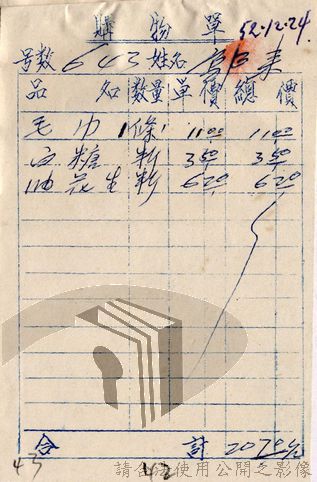 購物單 52.12.24.
号数 643 姓名
品名 数量 單價 總價
毛巾 1條 11 00 11 00
糖 斤 3 50 3 50
油花生 斤 6 20 6 20
合計 20 70
43 42
請合法使用公開之影像